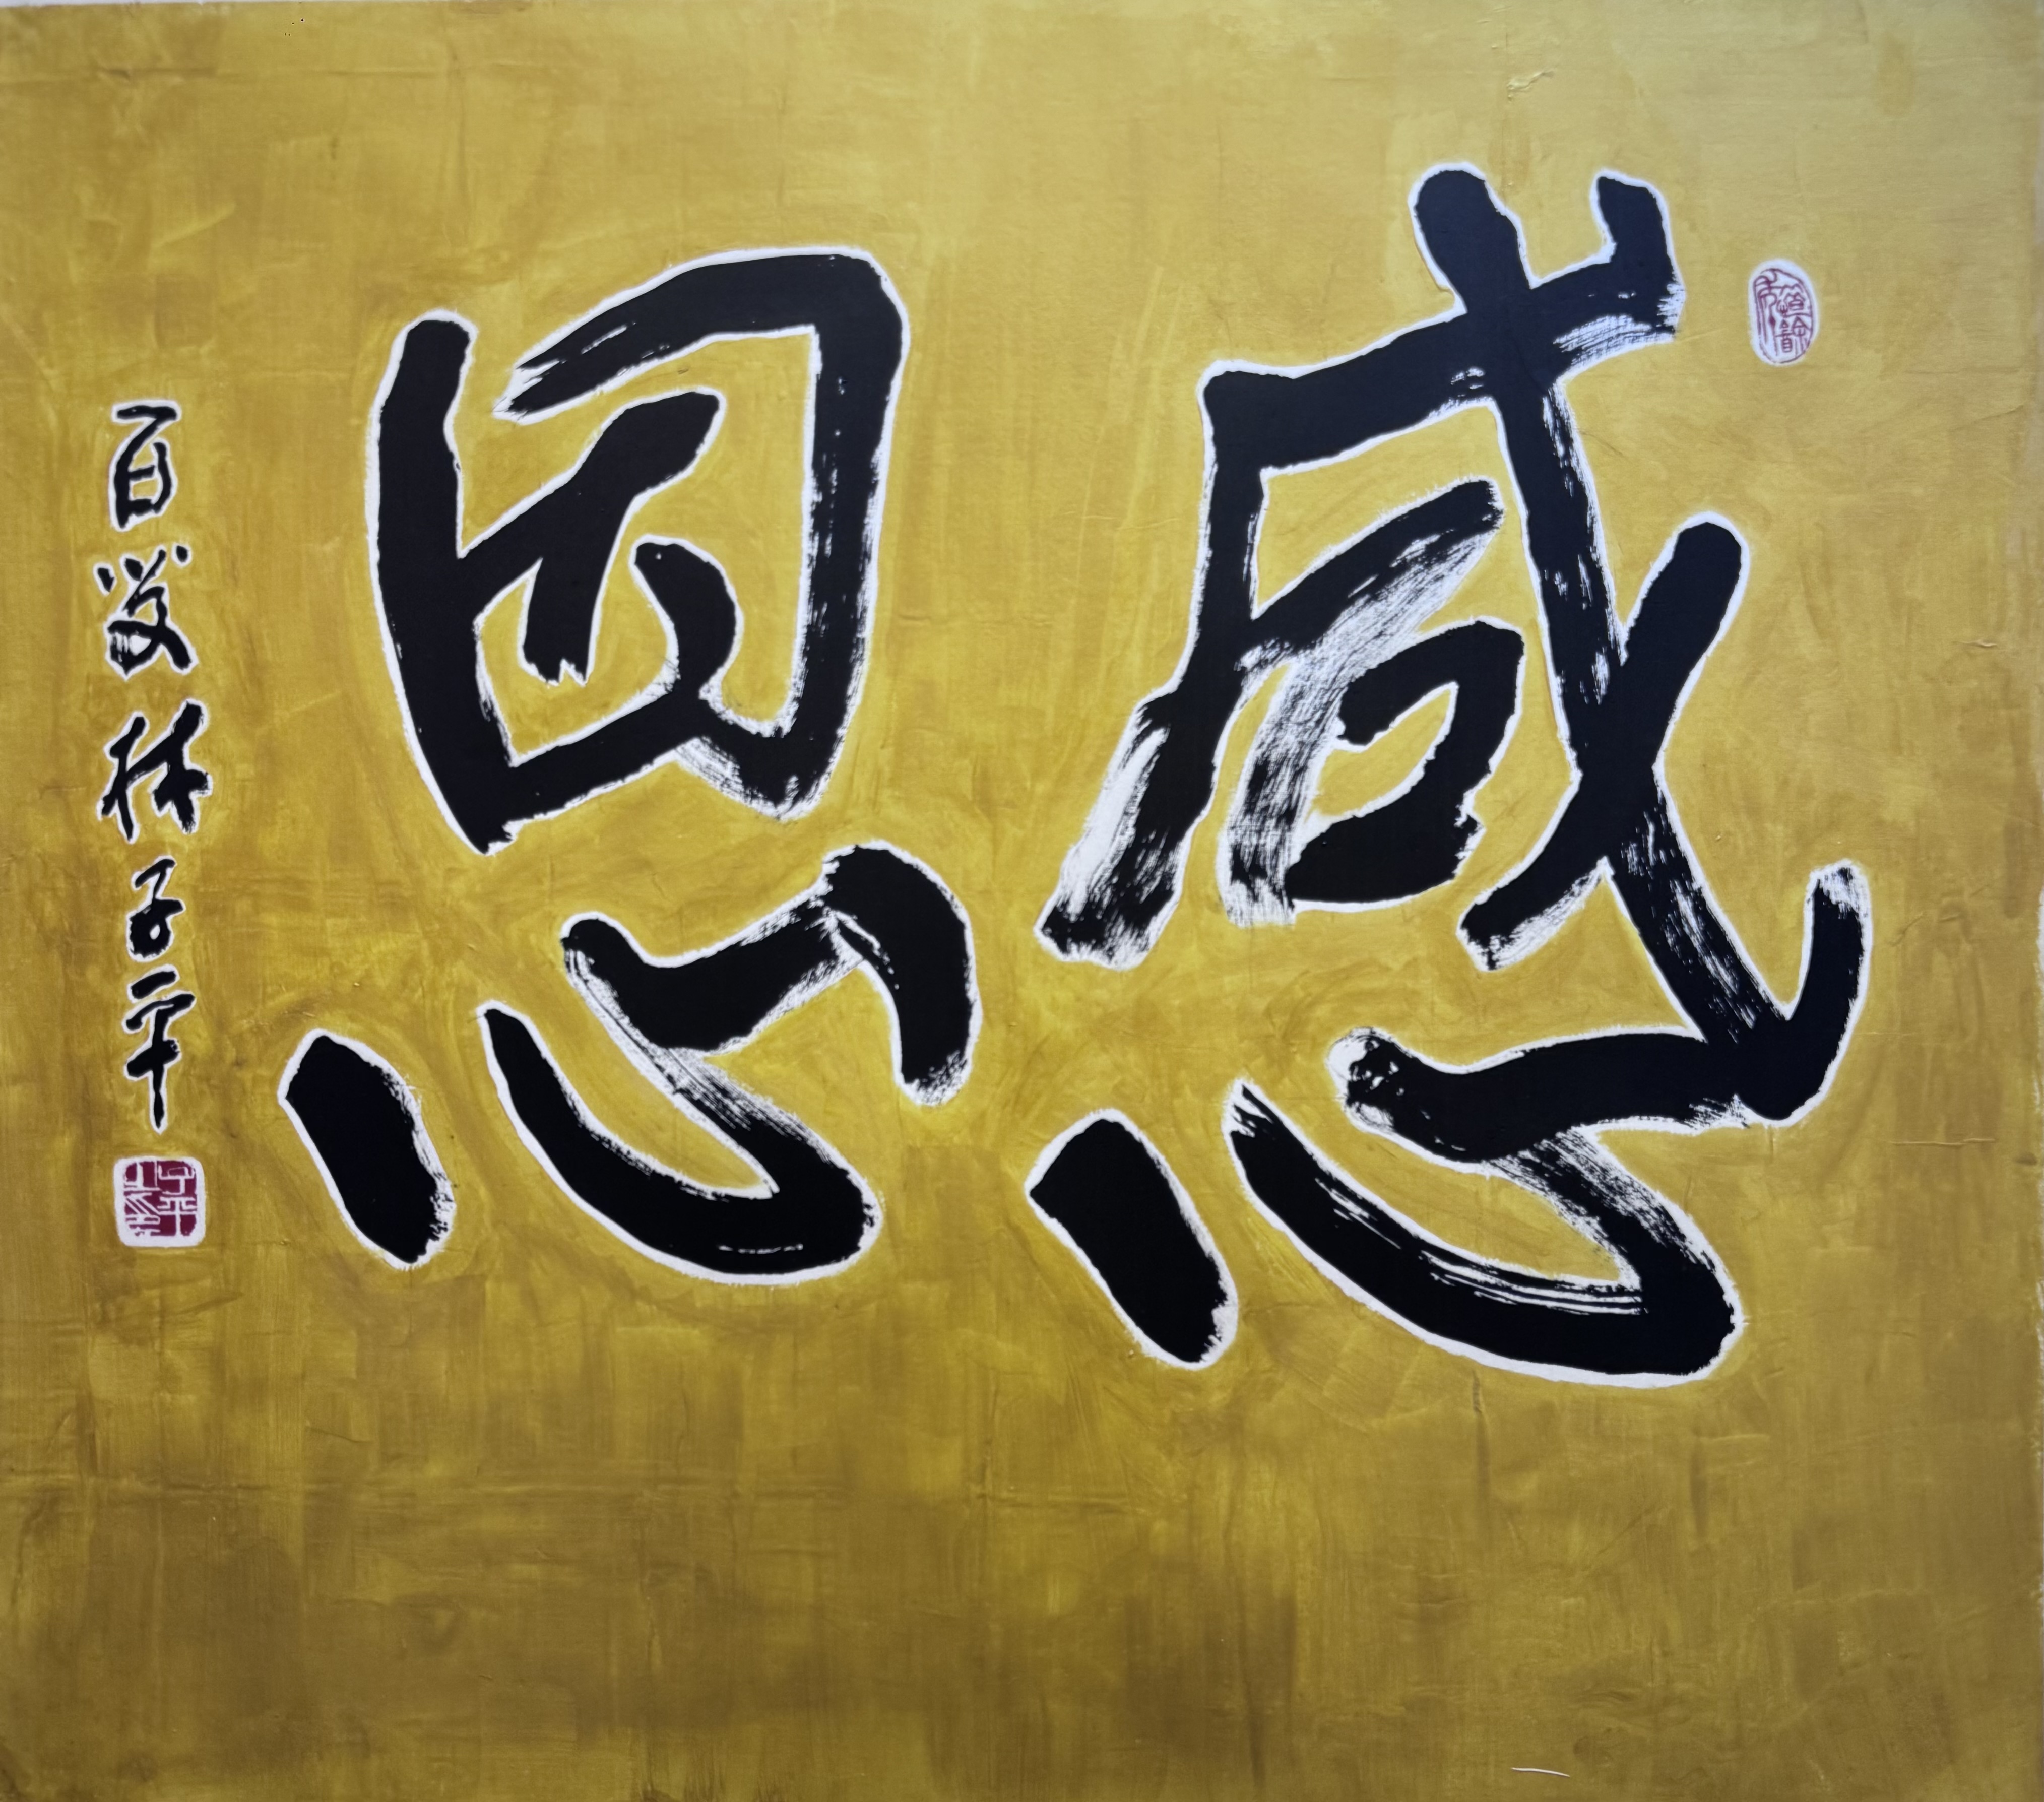 感恩
百发林子平